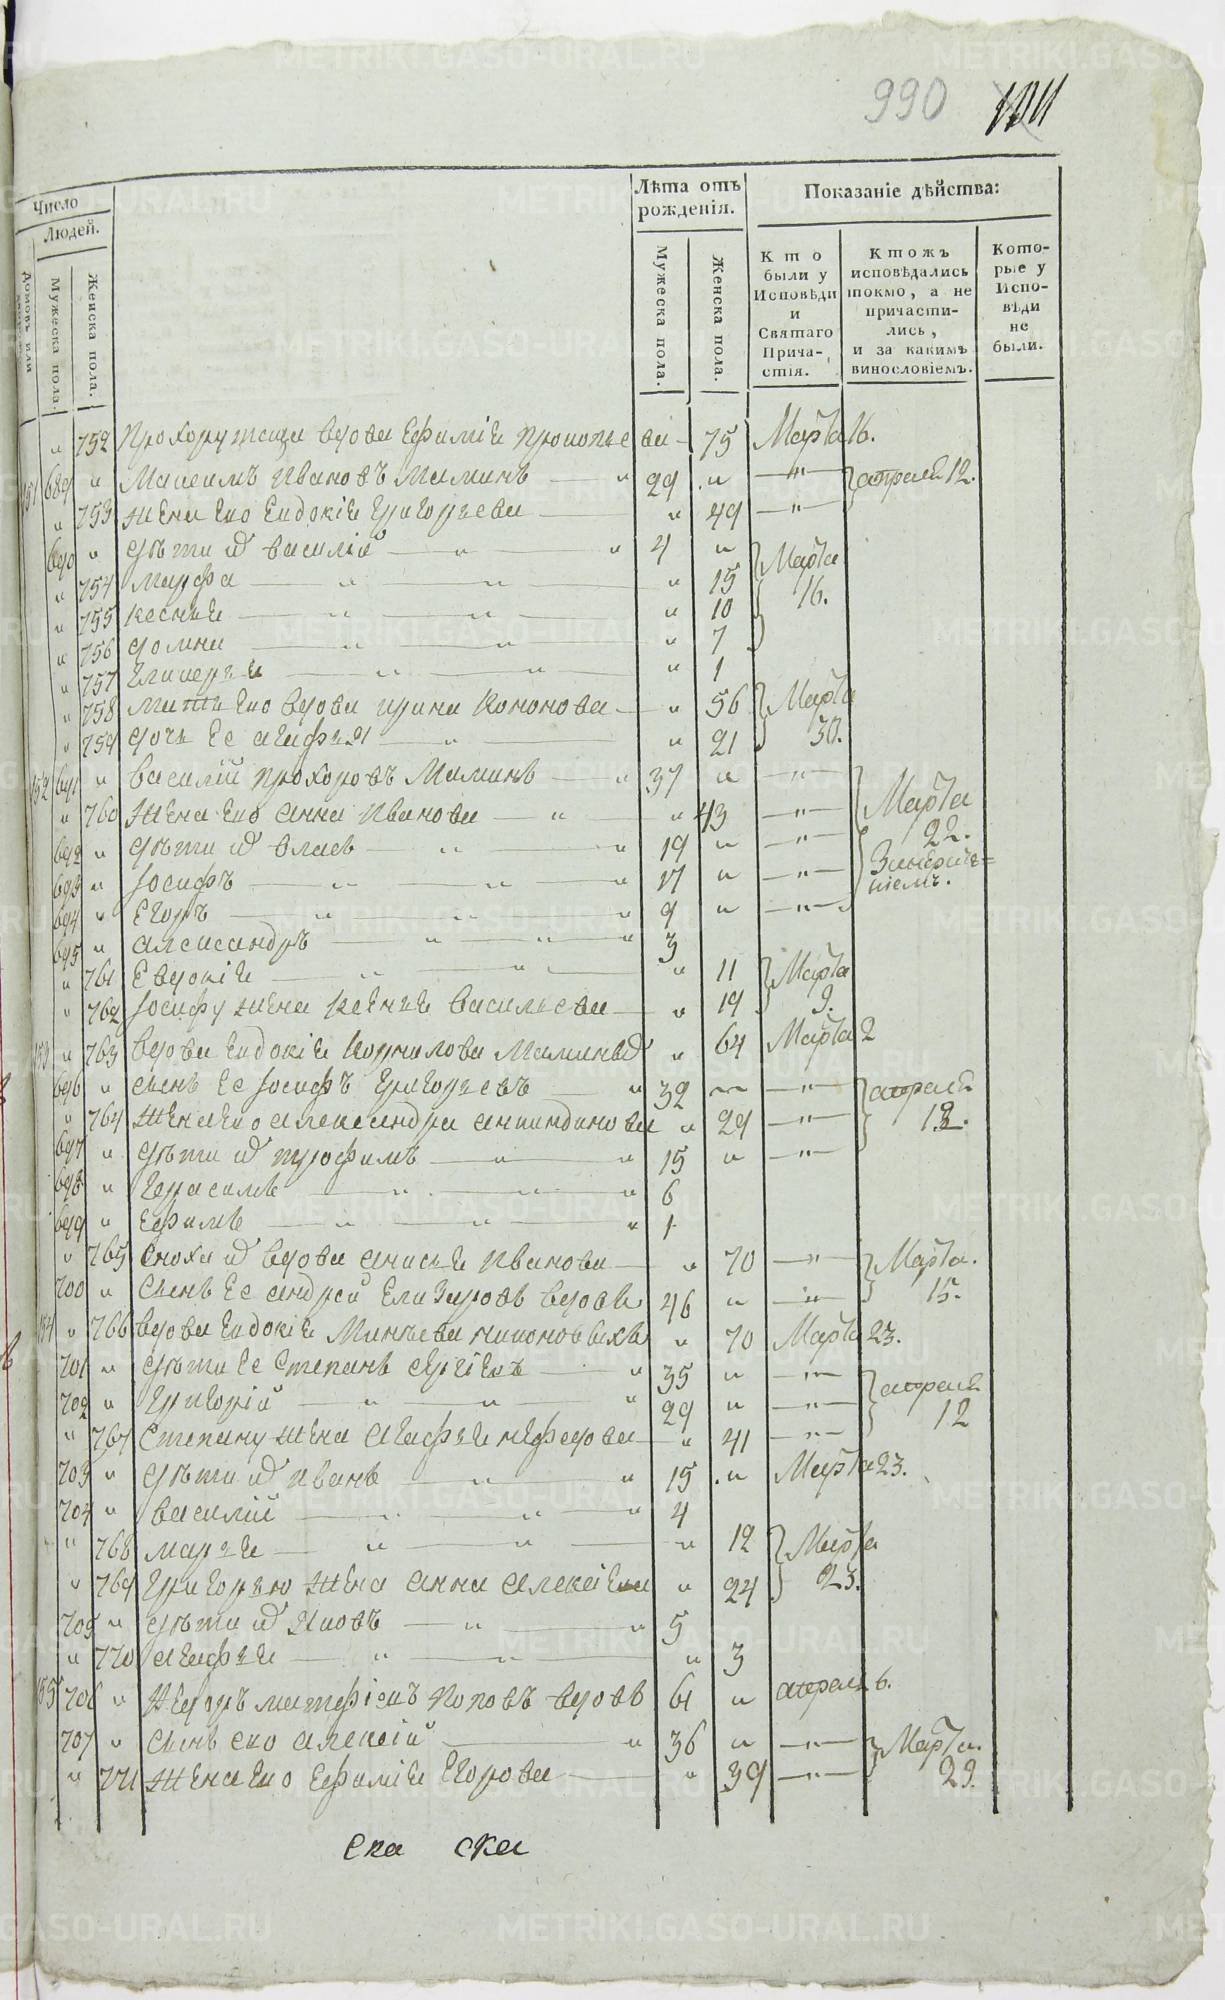 990
Число
Людей.
Домовъ или
Мужеска пола.
Женска пола.
Лѣта отъ
рожденія.
Мужеска пола.
Женска пола.
Показаніе дѣйства:
Кто
были у
Исповѣди
и
Святаго
Прича-
стія.
Ктожъ
исповѣдались
токмо, а не
причасти-
лись,
и за какимъ
винословіемъ.
Кото-
рые у
Испо-
вѣди
не
были.
" 752 Прохору теща вдова Ефимія Прокопьева — 75 Марта 16.
151 689 " Максимъ Ивановъ Маминъ — " 29 " — " — апреля 12.
" 753 жена его Евдокія Григорьева — " 49 — " —
690 " дѣти их Василій — " — " 4 "
" 754 Марфа — " — " — " 15 Марта
" 755 Ксенія — " — " — " 10 16.
" 756 Домна — " — " — " 7
" 757 Гликерья — " — " — " 1
" 758 мать его вдова Ирина Кононова — " 56 Марта
" 759 дочь ее Агафья — " — " 21 30.
152 691 " Василій Прохоровъ Маминъ — " 37 " — " —
" 760 жена его Анна Иванова — " — " 43 — " — Марта
692 " дѣти их Власъ — " — " 19 " — " — 22.
693 " Іосифъ — " — " — " 17 " — " —
694 " Егоръ — " — " — " 9 " — " —
695 " Александръ — " — " — " 3
" 761 Евдокія — " — " — " 11 Марта
" 762 Іосифу жена Ксенья Васильева — " 19 9.
153 " 763 вдова Евдокія Корнилова Маминых " 64 Марта 2
696 " сынъ ее Іосифъ Григорьевъ — " 32 — " — апреля
" 764 жена его Александра " 29 — " — 12.
697 " дѣти их Трофимъ — " — " 15 " — " —
698 " Герасимъ — " — " — " 6
699 " Ефимъ — " — " — " 1
" 765 Сноха их вдова Анисья Иванова — " 70 — " — Марта.
700 " сынъ ее Андрей Елизаровъ вдовъ 46 " — " — 15.
154 " 766 вдова Евдокія " 70 Марта 23.
701 " дѣти ее Степанъ — " 35 " — " —
702 " Григорій — " — " — " 29 " — " — апреля
" 767 Степану жена Агафья Нефедова — " 41 — " — 12
703 " дѣти их Иванъ — " — " 15 " Марта 23.
704 " Василій — " — " — " 4
" 768 Марья — " — " — " 12 Марта
" 769 Григорью жена Анна Алексіева " 24 23.
705 " дѣти их Яковъ — " — " 5
" 770 Агафья — " — " — " 3
155 706 " Ѳедоръ Поповъ вдовъ 61 " апреля 6.
707 " сынъ его Алексій — " 36 " — " — Марта.
" 771 жена его Ефимія Егорова — " 39 — " — 29.